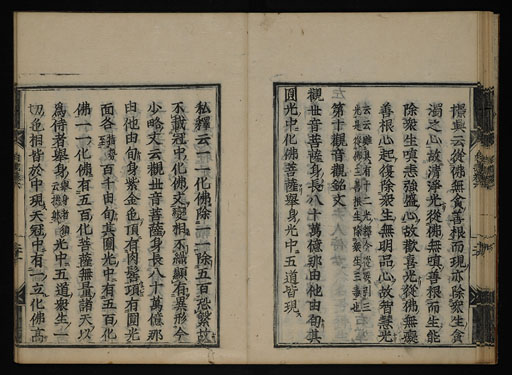 憬興云從佛無貪善根而現亦除衆生貪
濁之心故清淨光從佛無嗔善根而生能
除衆生嗔恚強盛心故歡喜光從佛無癡
善根心起復除衆生無明品心故智慧光
云云雖眞有十二光釋今從要引三
光是從佛三善根生除衆生三毒也
第十觀音觀銘文
觀世音菩薩身長八十萬億那由他由旬其
圓光中化佛菩薩舉身光中五道皆現
私釋云一一化佛除一一除五百恐繁故
不載冠中化佛文變相不繡顯有異形今
少略文云觀世音菩薩身長八十萬億那
由他由旬身紫金色頂有肉髻項有圓光
面各百千由旬其圓光中有五百化
佛一一化佛有五百化菩薩無量諸天以
爲侍者舉身光中五道衆生一
切色相皆於中現天冠中有一立化佛高